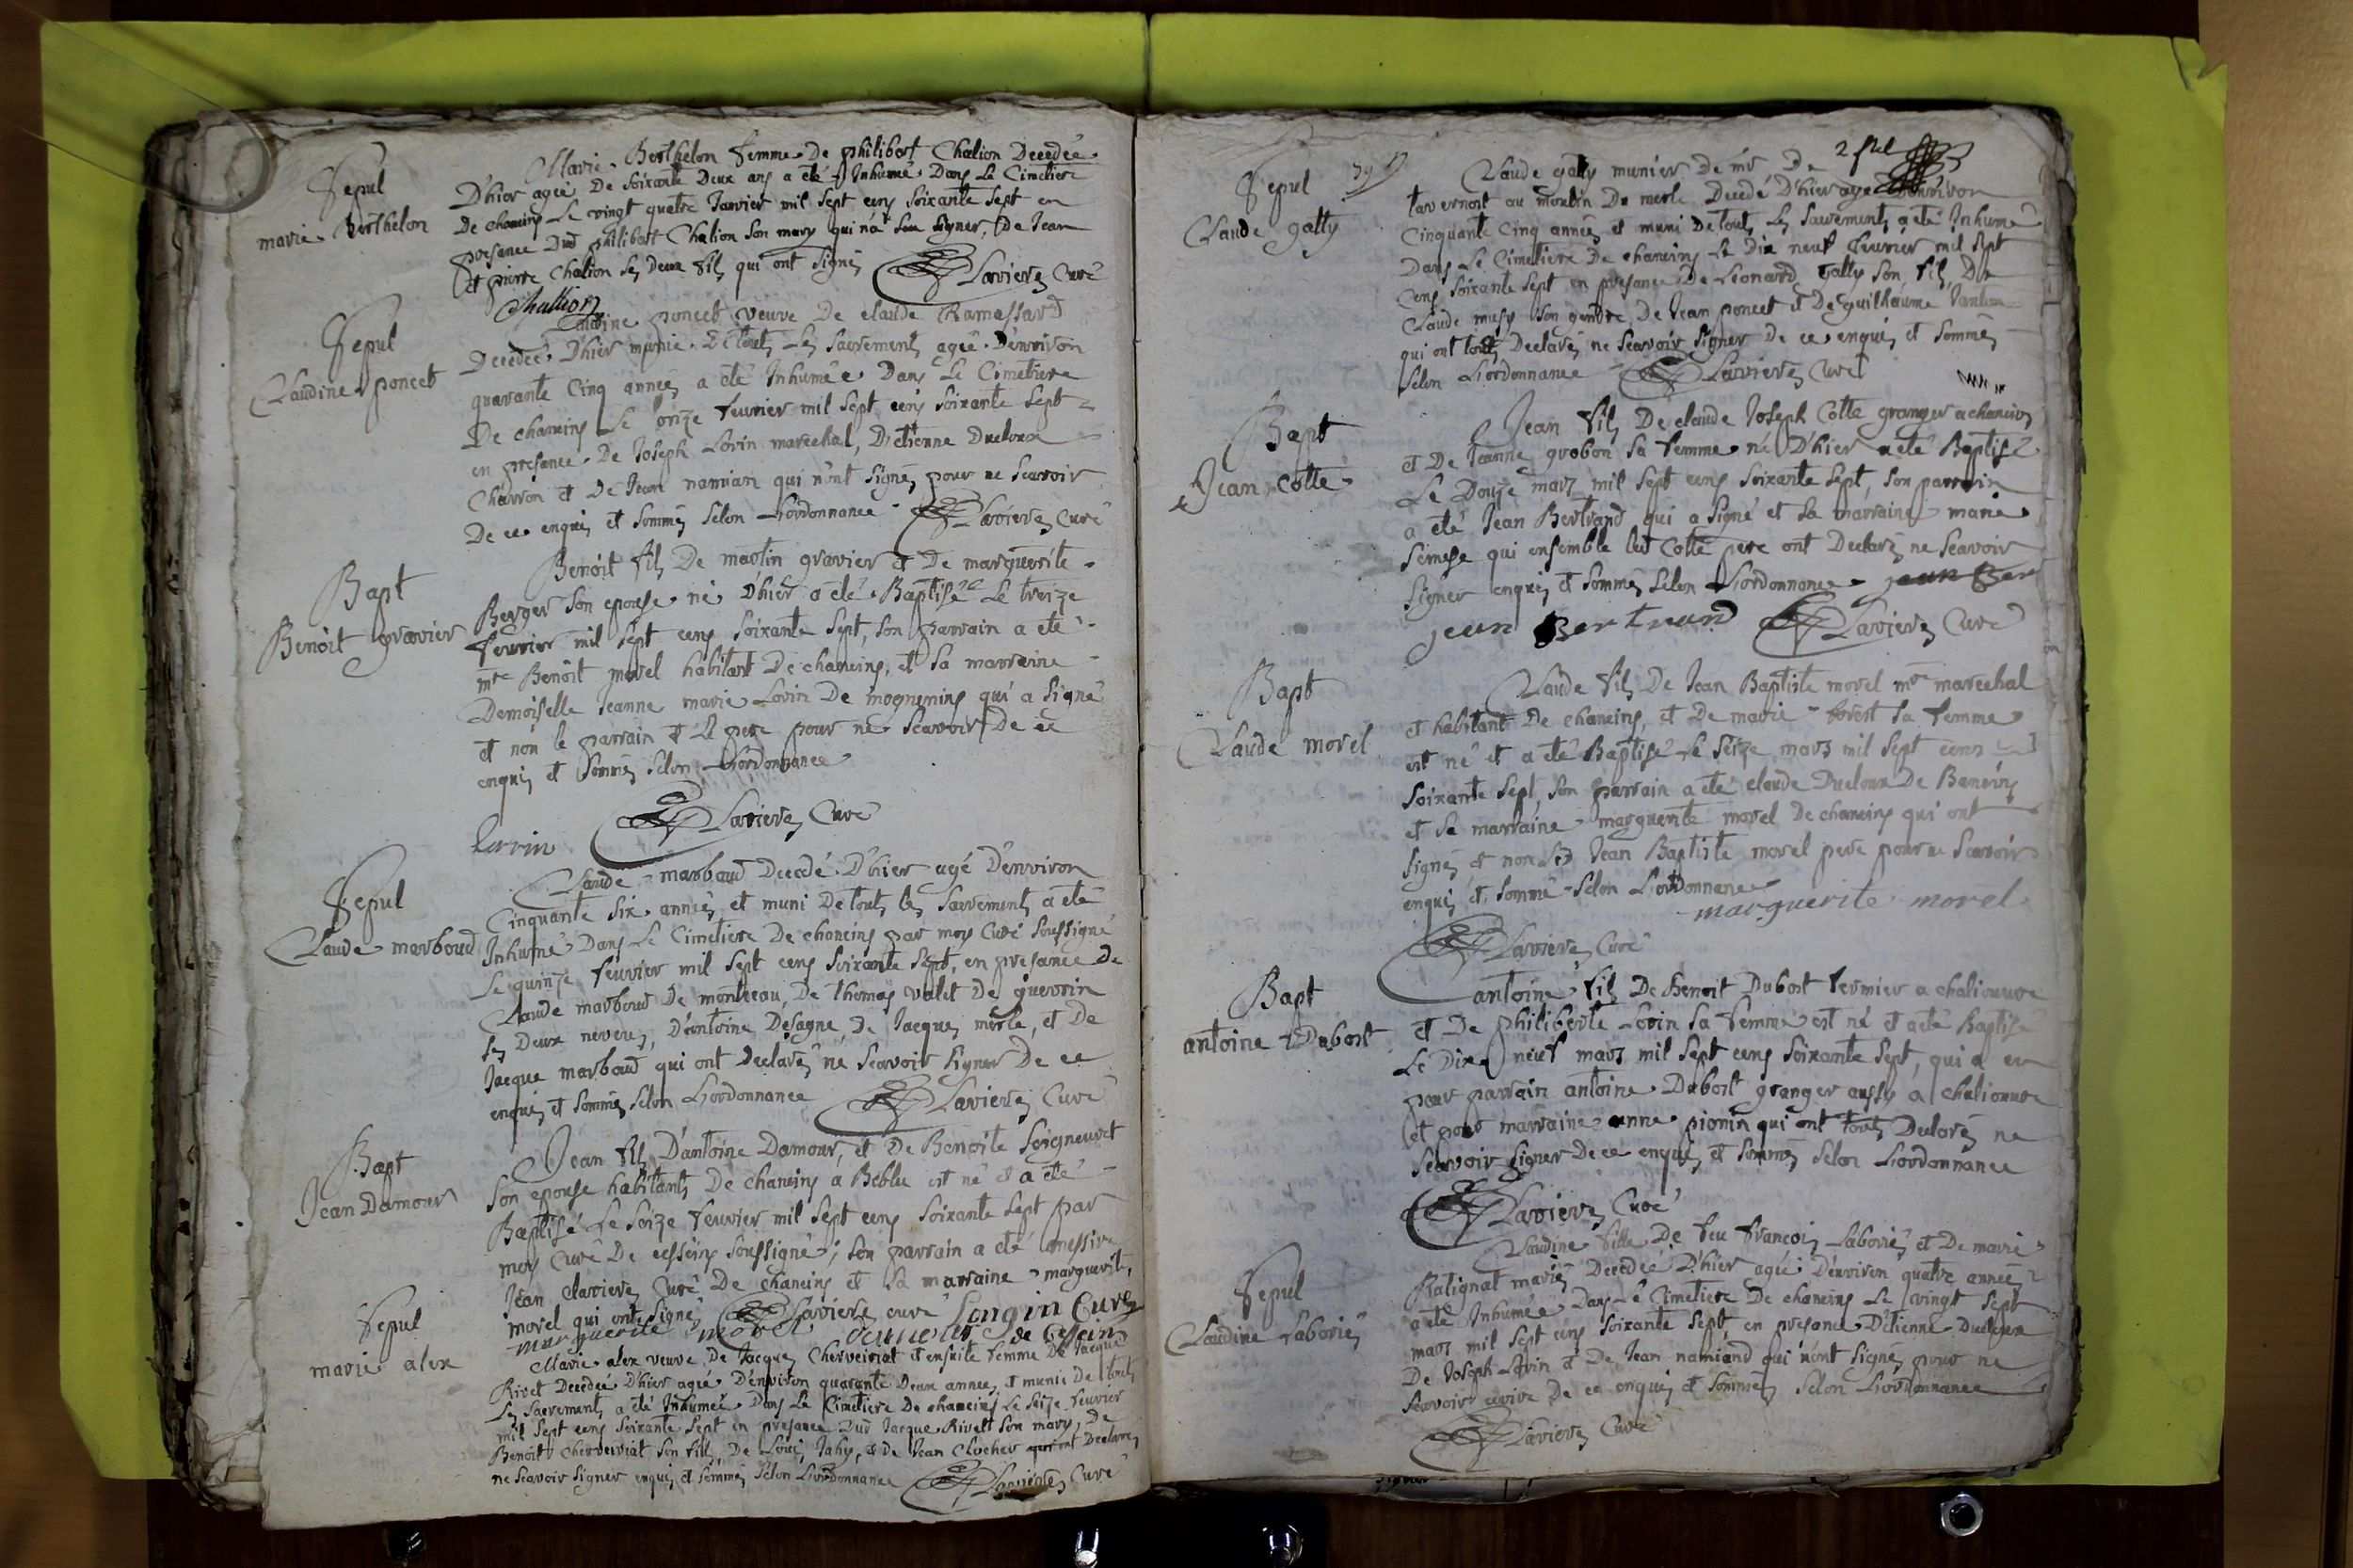 Sepul
marie Berthelon
Marie Berthelon femme De philibert Chalion Decedée
D'hier agée De soixante Deux ans a eté Inhumée Dans Le Cimetiere
De chaneins Le vingt quatre Janvier mil sept cens soixante sept en
presance Dud philibert Chalion son mary qui n'a sceu signer, De Jean
et pierre Chalion ses Deux fils qui ont signés Lavieres Curé
Challion
Sepul
Claudine poncet
Claudine poncet veuve De claude Ramassard
Decedée D'hier munie De touts Les sacrements agée D'environ
quarante Cinq années a eté Inhumée Dans Le Cimetiere
De chaneins Le onze fevrier mil sept cens soixante sept
en presance De Joseph Lorin marechal, D'etienne Ducloux
Charron et De Jean namian qui n'ont signés pour ne scavoir
De ce enquis et sommés selon L'ordonnance Lavieres Curé
Bapt
Benoit gravier
Benoit fils De martin gravier et De marguerite
Berger son epouse né D'hier a eté Baptisé Le treize
fevrier mil sept cens soixante sept, son parrain a eté
mre Benoit morel habitant De chaneins, et sa marraine
Demoiselle Jeanne marie Lorin De mognenins qui a signé
et non le parrain et Le pere pour ne scavoir De ce
enquis et sommés selon L'ordonnance
Lorin Lavieres Curé
Sepul
Claude marboud
Claude marboud Decedé D'hier agé D'environ
Cinquante six années et muni De touts les sacrements a eté
Inhumé Dans Le Cimetiere De chaneins par moy Curé soussigné
Le quinze fevrier mil sept cens soixante sept, en presance De
Claude marboud De monteau, De thomas valet De guerrin
ses Deux neveux, D'antoine Desagne, De Jacques merle, et De
Jacque marboud qui ont Declarés ne scavoir signer De ce
enquis et sommés selon L'ordonnance Lavieres Curé
Bapt
Jean Damour
Jean fils D'antoine Damour, et De Benoite Seigneuret
son epouse habitants De chaneins a Beblu est né et a eté
Baptisé Le seize fevrier mil sept cens soixante sept par
moy Curé De cesseins soussigné; son parrain a eté messire
Jean Lavieres Curé De chaneins et sa marraine marguerite
morel qui ont signés Lavieres curé Longin Curé
marguerite morel damour de Cesseins
Sepul
marie alex
Marie alex veuve De Jacques Cherveiriat et ensuite femme De Jacque
Rivet Decedée D'hier agée D'environ quarante Deux années, et munie De touts
Les sacrements a eté Inhumée Dans Le Cimetiere De chaneins Le seize fevrier
mil sept cens soixante sept en presance Dud Jacque Rivet son mary, De
Benoit Cherveiriat son fils, De Louis Jahy, et De Jean Clocher qui ont Declarés
ne scavoir signer enquis et sommés selon L'ordonnance Lavieres Curé
2 fuel
39
Sepul
Claude gally
Claude gally munier De mr De
tavernost au moulin Du merle Decedé D'hier agé D'environ
Cinquante Cinq années et muni De touts Les sacrements a eté Inhumé
Dans Le Cimetiere De chaneins Le Dix neuf fevrier mil sept
cens soixante sept en presance De Leonard gally son fils, De
Claude mury son gendre, De Jean poncet et De guilhaume
qui ont touts Declarés ne scavoir signer De ce enquis et sommés
selon L'ordonnance Lavieres Curé
Bapt
Jean Colte
Jean fils De claude Joseph Colte granger a chaneins
et De Jeanne grobon sa femme né D'hier a eté Baptisé
Le Douze mars mil sept cens soixante sept, son parrain
a eté Jean Bertrand qui a signé et sa marraine marie
Semesse qui ensemble led Colte pere ont Declarés ne scavoir
signer enquis et sommés selon L'ordonnance jean Ber
jean Bertrand Lavieres Curé
Bapt
Claude morel
Claude fils De Jean Baptiste morel mre marechal
et habitant De chaneins, et De marie forest sa femme
est né et a eté Baptisé Le seize mars mil sept cens
soixante sept, son parrain a eté claude Ducloux De Baneins
et sa marraine marguerite morel De chaneins qui ont
signés et non led Jean Baptiste morel pere pour ne scavoir
enquis et sommé selon L'ordonnance
marguerite morel
Lavieres Curé
Bapt
antoine Dubost
antoine fils De Benoit Dubost fermier a chaliouvre
et De philiberte Lorin sa femme est né et a eté Baptisé
Le Dix neuf mars mil sept cens soixante sept, qui a eu
pour parrain antoine Dubost granger aussy a chaliouvre
et pour marraine anne pionin qui ont touts Declarés ne
scavoir signer De ce enquis et sommés selon L'ordonnance
Lavieres Curé
Sepul
Claudine Laboriés
Claudine fille De feu francois Laboriés et De marie
Ratignat mariés Decedée D'hier agée D'environ quatre années
a eté Inhumée Dans Le Cimetiere De chaneins Le vingt sept
mars mil sept cens soixante sept en presance D'etienne Ducloux
De Joseph Lorin et De Jean namiand qui n'ont signés pour ne
scavoir ecrire De ce enquis et sommés selon L'ordonnance
Lavieres Curé